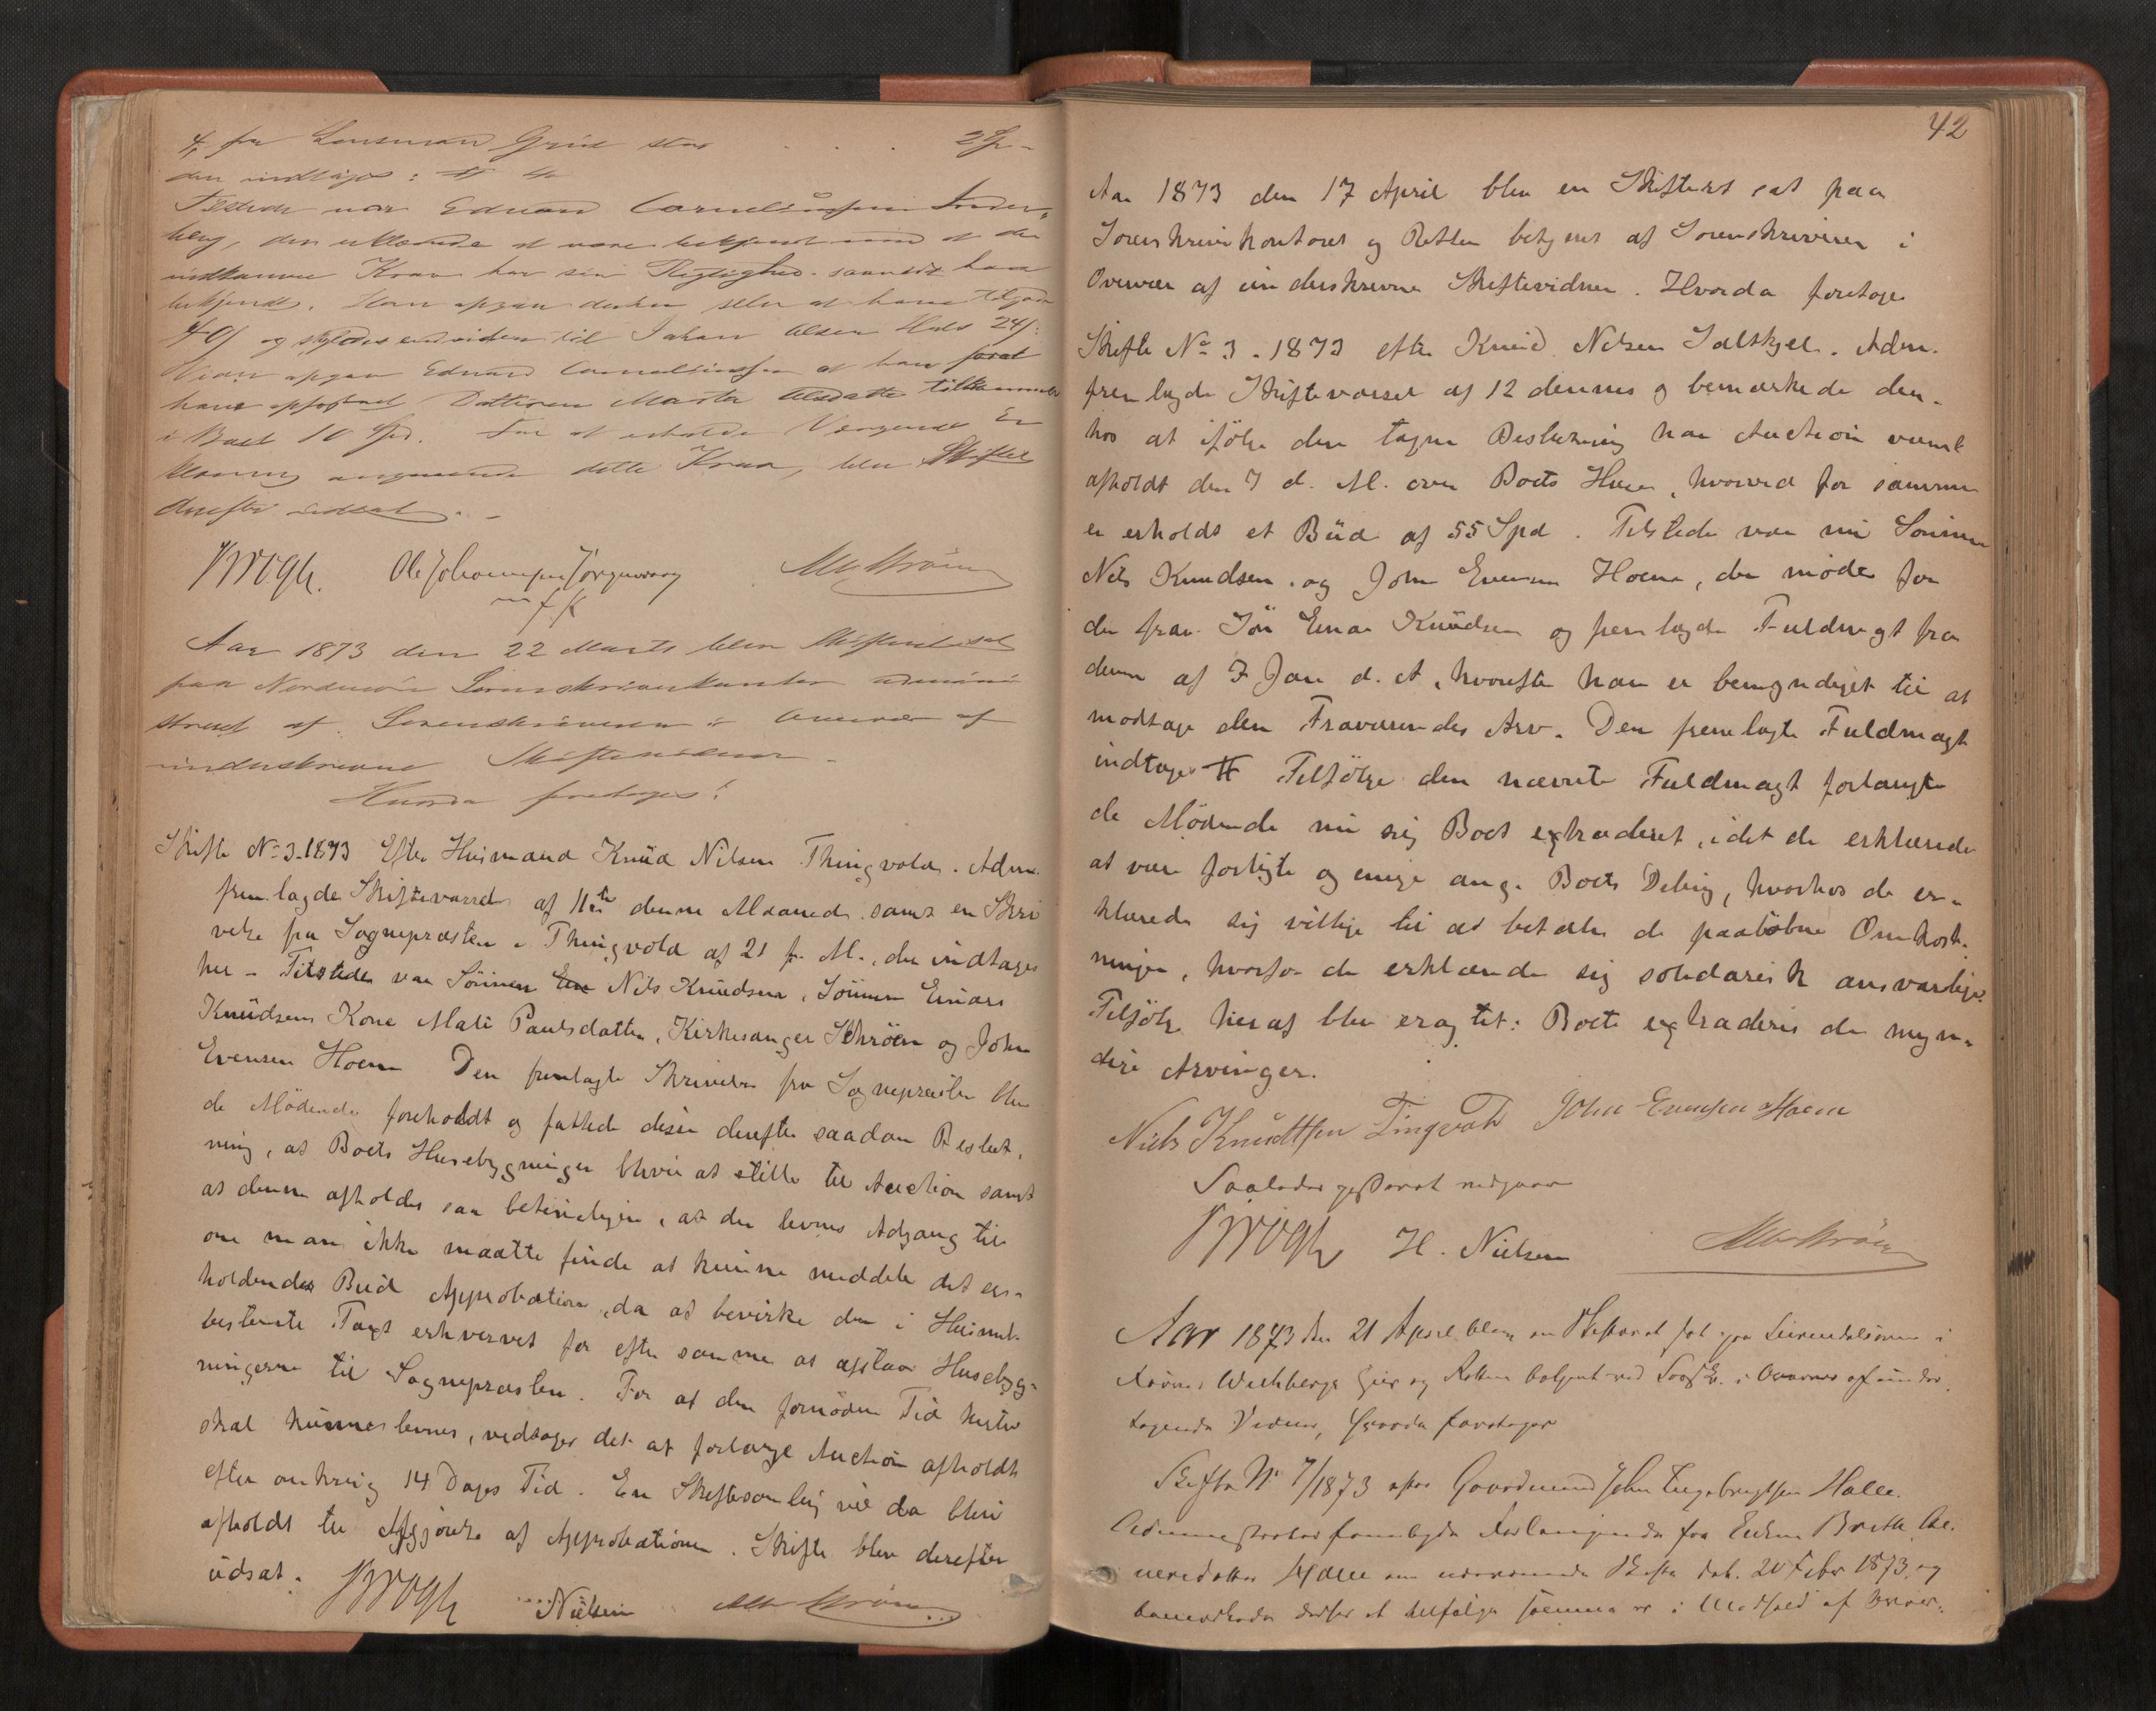 4, fra Lensmand Grüe stor . . . 2 Sp -
der indtages: # 4
Tilstede var Eduard Corneliussen Inder-
berg, der erklærede at være bekjendt med at de
indkomne Krav har sin Rigtighed saavidt ham
bekjendt. Han opgav derhos selv at have tilgode
og skyldes endvidere til Johan Olsen Hals 24
opgav Eduard Corneliussen at han forat
have opfostret Datteren Marta Olsdatter tilkommer
i Boet 10 Spd. For at erholde Vergernes Er
klæring angaaende dette Krav, blev Skiftet
derefter udsat. -
Brogh. Ole Johannesen Jørgenvaag
m f K
Aar 1873 den 22 Marts blev Skifteret sat
paa Nordmøre Sorenskriverkontor admini
streret af Sorenskriveren i Overvær af
underskrevne Skiftevidner -
Hvorda foretoges:
Skifte No 3-1873 Efter Husmand Knüd Nilsen Thingvold. Adm.
fremlagde Skiftevarsel af 11te denne Maaned samt en Skri
velse fra Sognepræsten i Thingvold af 21 f. M., der indtages
her - Tilstede var Sönnen Nils Knüdsen, Sönnen Einars
Knüdsens Kone Mali Paulsdatter, Kirkesanger Schröen og John
Evensen Hoem Den fremlagte Skrivelse fra Sognepræsten blev
de Mödende foreholdt og fattede disse derefter saadan Beslut-
ning, at Boets Husebygninger bliver at stille til Auction samt
at denne afholdes saa betimeligen, at der levnes Adgang til
om man ikke maatte finde at kunne meddele det er-
holdendes Bud Approbation, da at bevirke den i Husmd.
bestemte Taxt erhvervet for efter samme at afstaa Husebyg-
ningerne til Sognepræsten. For at den fornødne Tid hertil
skal kunne levnes, vedtages det at forlange Auction afholdt
efter omkring 14 Dages Tid. En Skiftesamling vil da blive
afholdt til Afgjörelse af Approbationen. Skifte blev derefter
udsat. Brogh Nielsen
42
Aar 1873 den 17 April blev en Skifteret sat paa
Sorenskriverkontoret og Retten betjent af Sorenskriveren i
Overvær af underskrevne Skiftevidner. Hvorda foretoges
Skifte No 3 - 1873 efter Knüd Nilsen Saltkjel. Adm.
fremlagde Skiftevarsel af 12 dennes og bemærkede der-
hos at ifölge den tagne Beslutning har Auction været
afholdt den 7 d. M. over Boets Huse, hvorved for samme
er erholdt et Büd af 55 Spd. Tilstede var nu Sönnen
Nils Knudsen og John Evensen Hoem, der möder for
den frav. Sön Einar Knüdsen og fremlagde Fuldmagt fra
denne af 7 Jan d. A, hvorefter han er bemyndiget til at
modtage den Fraværendes Arv. Den fremlagte Fuldmagt
indtages # Tilfölge den nævnte Fuldmagt forlangte
de Mödende nu sig Boet extraderet, idet de erklærede
at være forligte og enige ang. Boets Deling, hvorhos de er-
klærede sig villige til at betale de paalöbne Omkost-
ninger, hvorfor de erklærede sig solidarisk ansvarlige.
Tilfölge heraf blev eragtet: Boet extraderes de myn-
dige Arvinger.
Niels Knudtsen Tingvold John Evensen Hoem
Saaledes passeret vedgaaes
Brogh H. Nielsen
Aar 1873 den 21 April blev en Skifteret sat paa
og Retten betjent ved i Overvær af under-
tegnede Vidner, hvorda foretages
Skifte No 7/1873 efter Gaardmand John Ingebrigtsen Halle.
Administrator fremlagde Forlangende fra Enken Brith
Halle om Skifte dat. 20 Febr 1873, og
bemærkede derhos at ifølge samme er i Medhold af